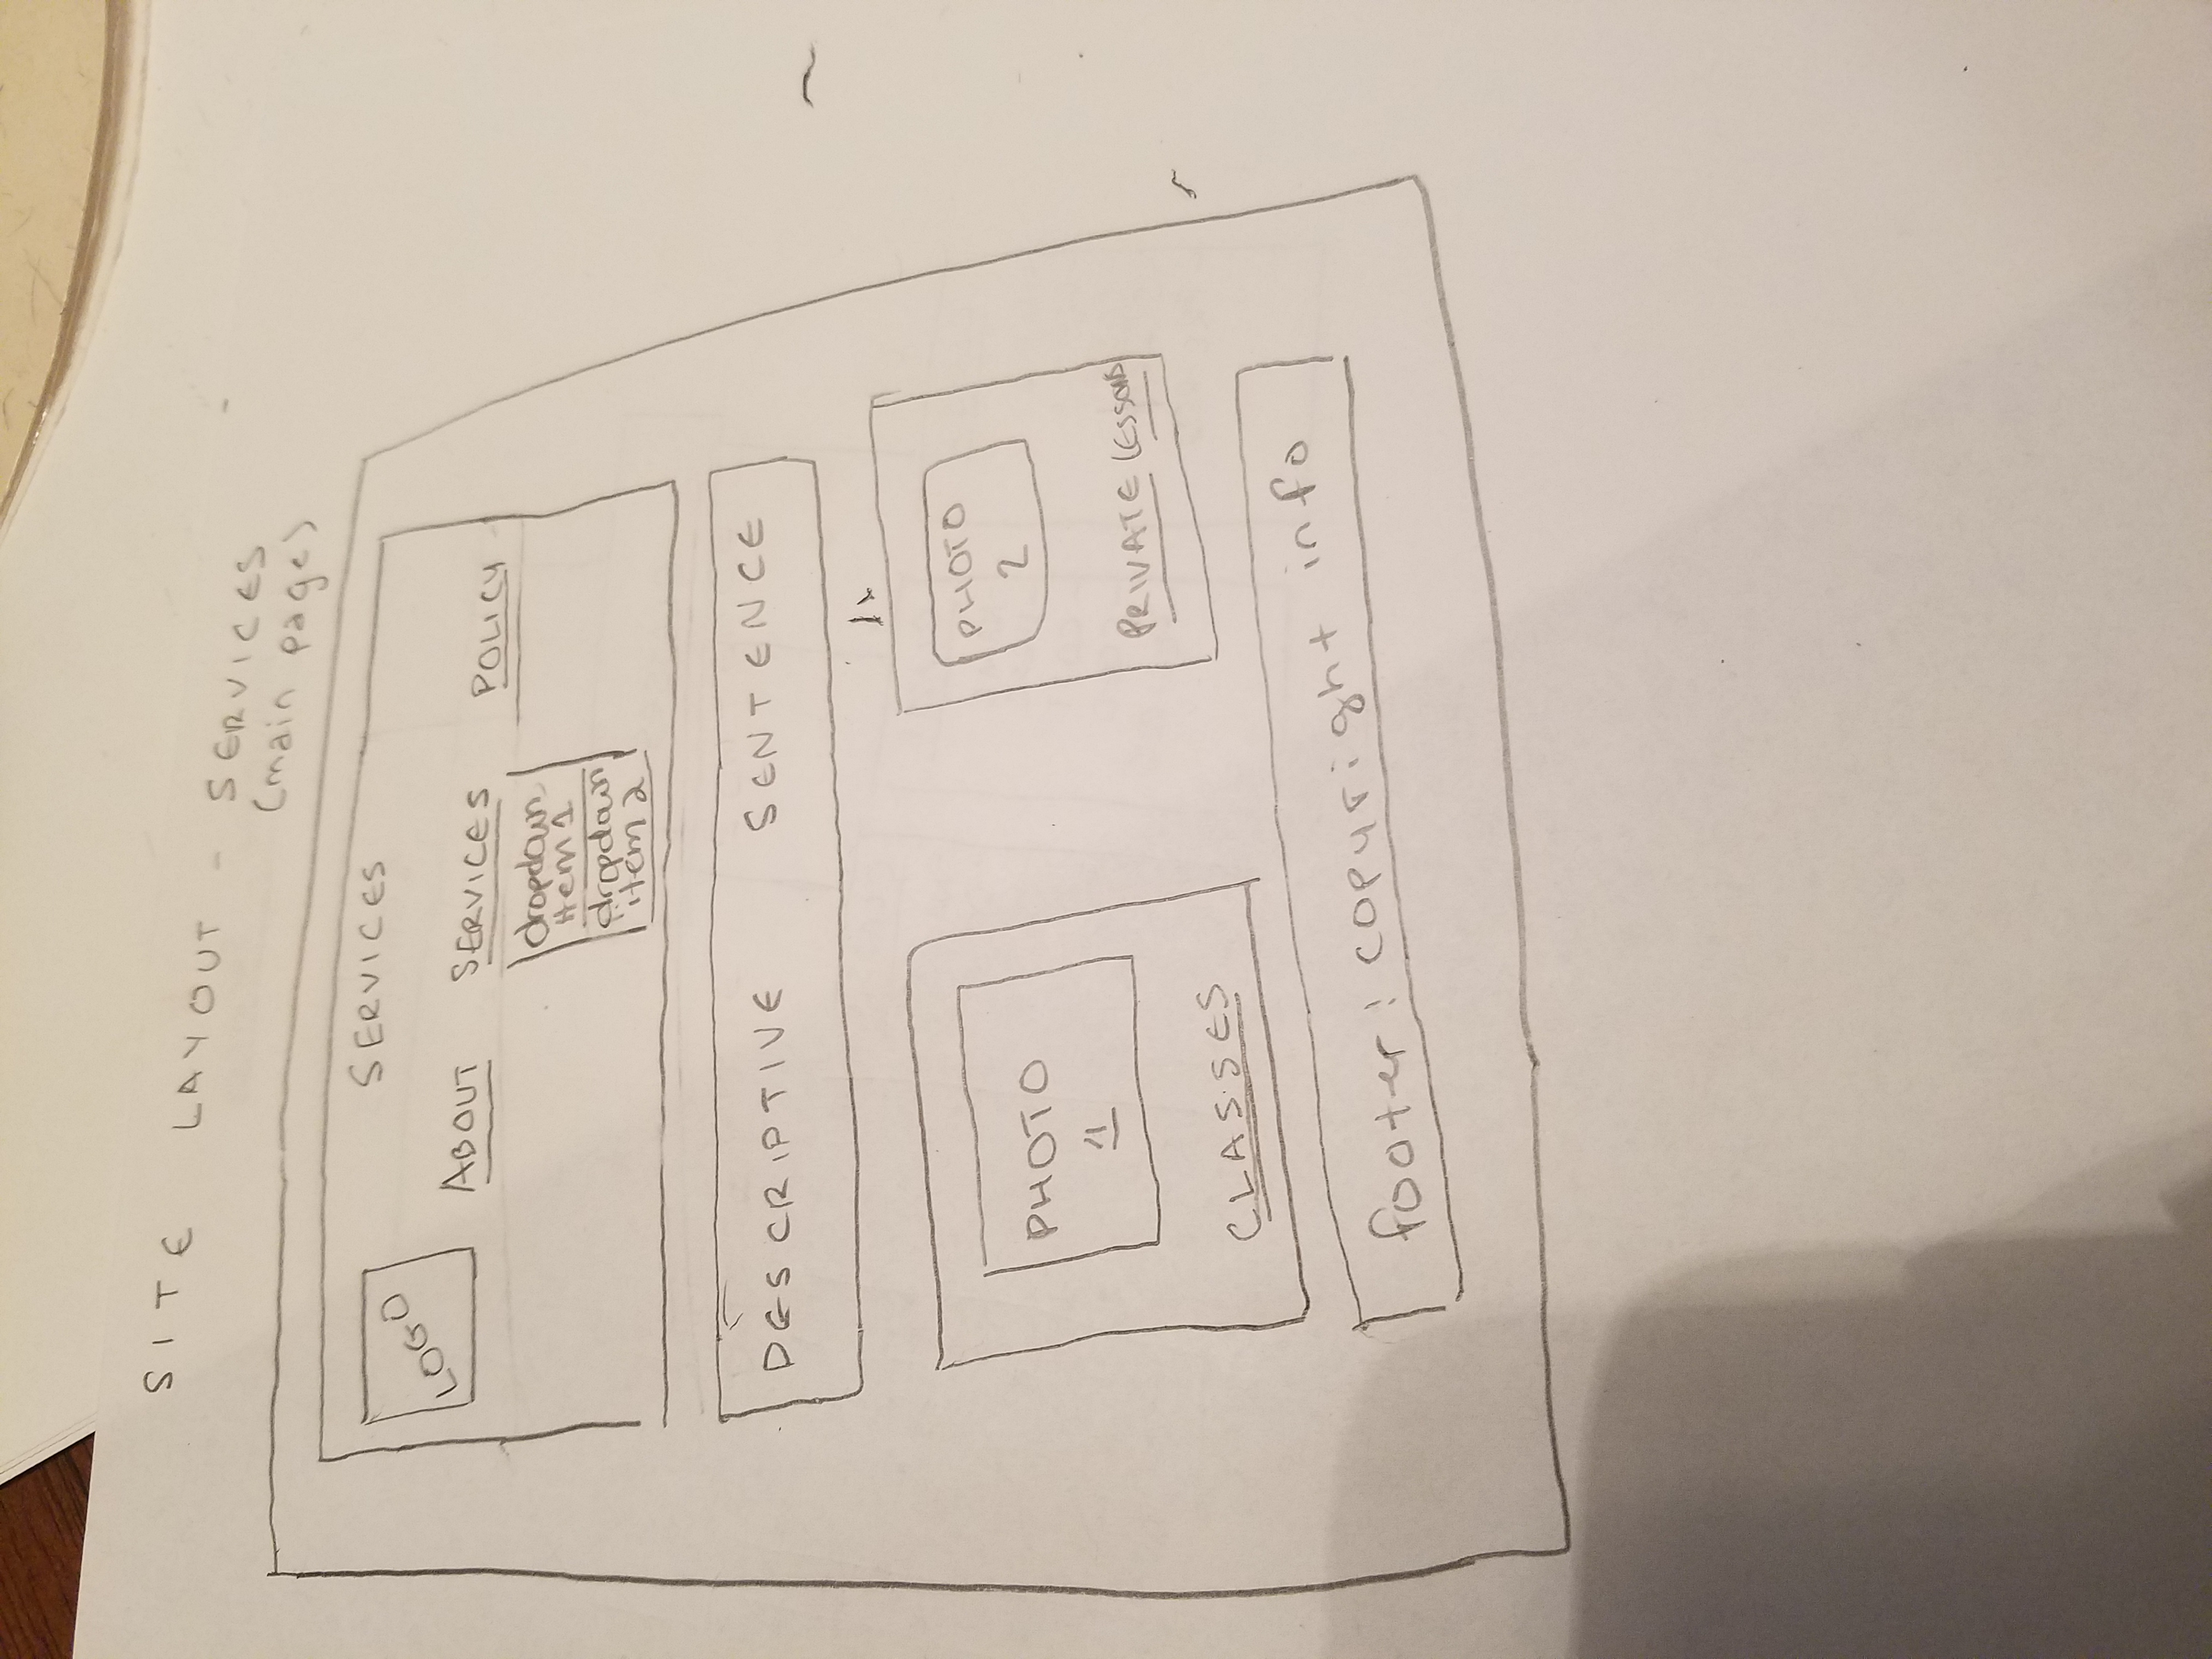 SITE LAYOUT - SERVICES
(main page)
SERVICES
LOGO
ABOUT SERVICES POLICY
dropdown
item 1
dropdown
item 2
DESCRIPTIVE SENTENCE
PHOTO
1
CLASSES
PHOTO
2
PRIVATE LESSONS
footer: copyright info